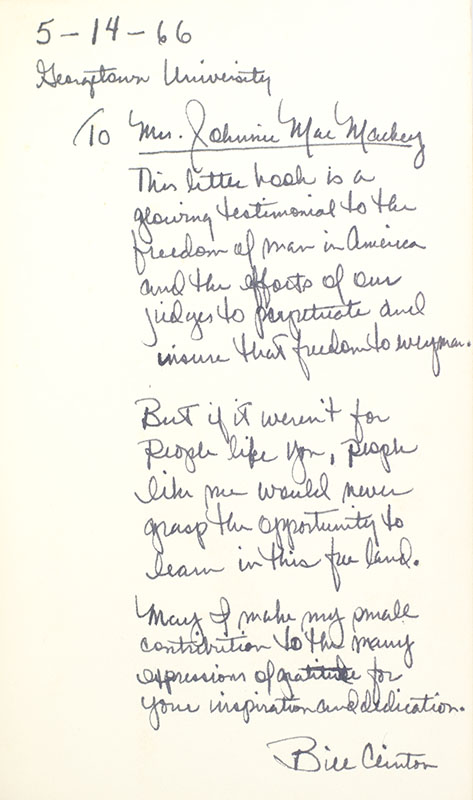 5-14-66
Georgetown University
To Mrs. Johnnie Mae Mackey
This little book is a
glowing testimonial to the
freedom of man in America
and the efforts of our
judges to perpetuate and
insure that freedom to everyman.
But if it weren't for
people like you, people
like me would never
grasp the opportunity to
learn in this free land.
May I make my small
contribution to the many
expressions of gratitude for
your inspiration and dedication.
Bill Clinton